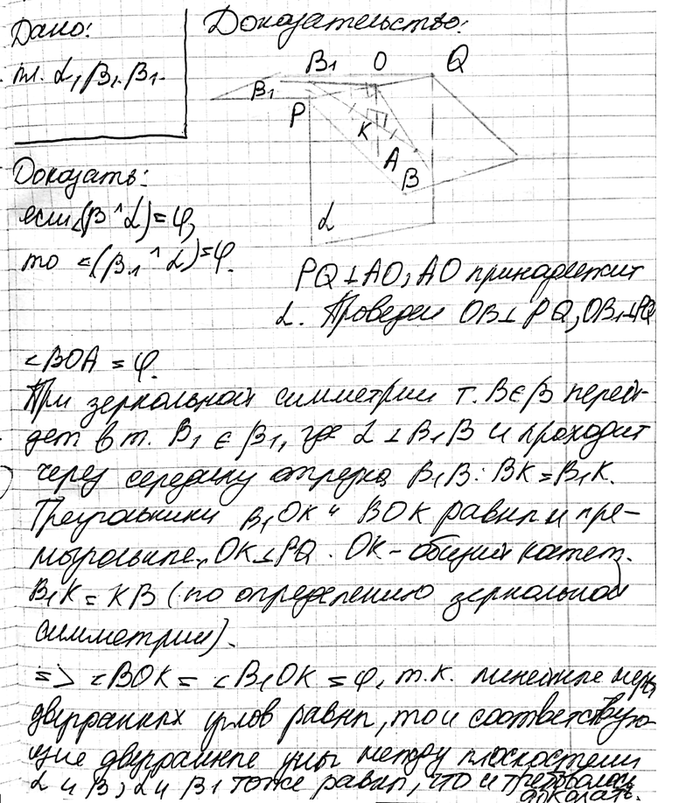 Дано:
пл. α, β, β₁.
Доказать:
если ∠(β^α)=φ,
то ∠(β₁^α)=φ.
Доказательство:
B₁ O Q
β₁
P
K
A
B
α
PQ⊥AO, AO принадлежит
α. Проведем OB⊥PQ, OB₁⊥PQ
∠BOA = φ.
При зеркальной симметрии т. B∈β перей-
дет в т. B₁ ∈ β₁, где α ⊥ B₁B и проходит
через середину отрезка B₁B: BK=B₁K.
Треугольники B₁OK и BOK равны и пре-
моугольные, OK⊥PQ. OK - общий катет.
B₁K = KB (по определению зеркальной
симметрии).
=> ∠BOK = ∠B₁OK = φ, т.к. линейные меры
двугранных углов равны, то и соответствую-
щие двугранные углы между плоскостями
α и β, α и β₁ тоже равны, что и требовалось
доказать.